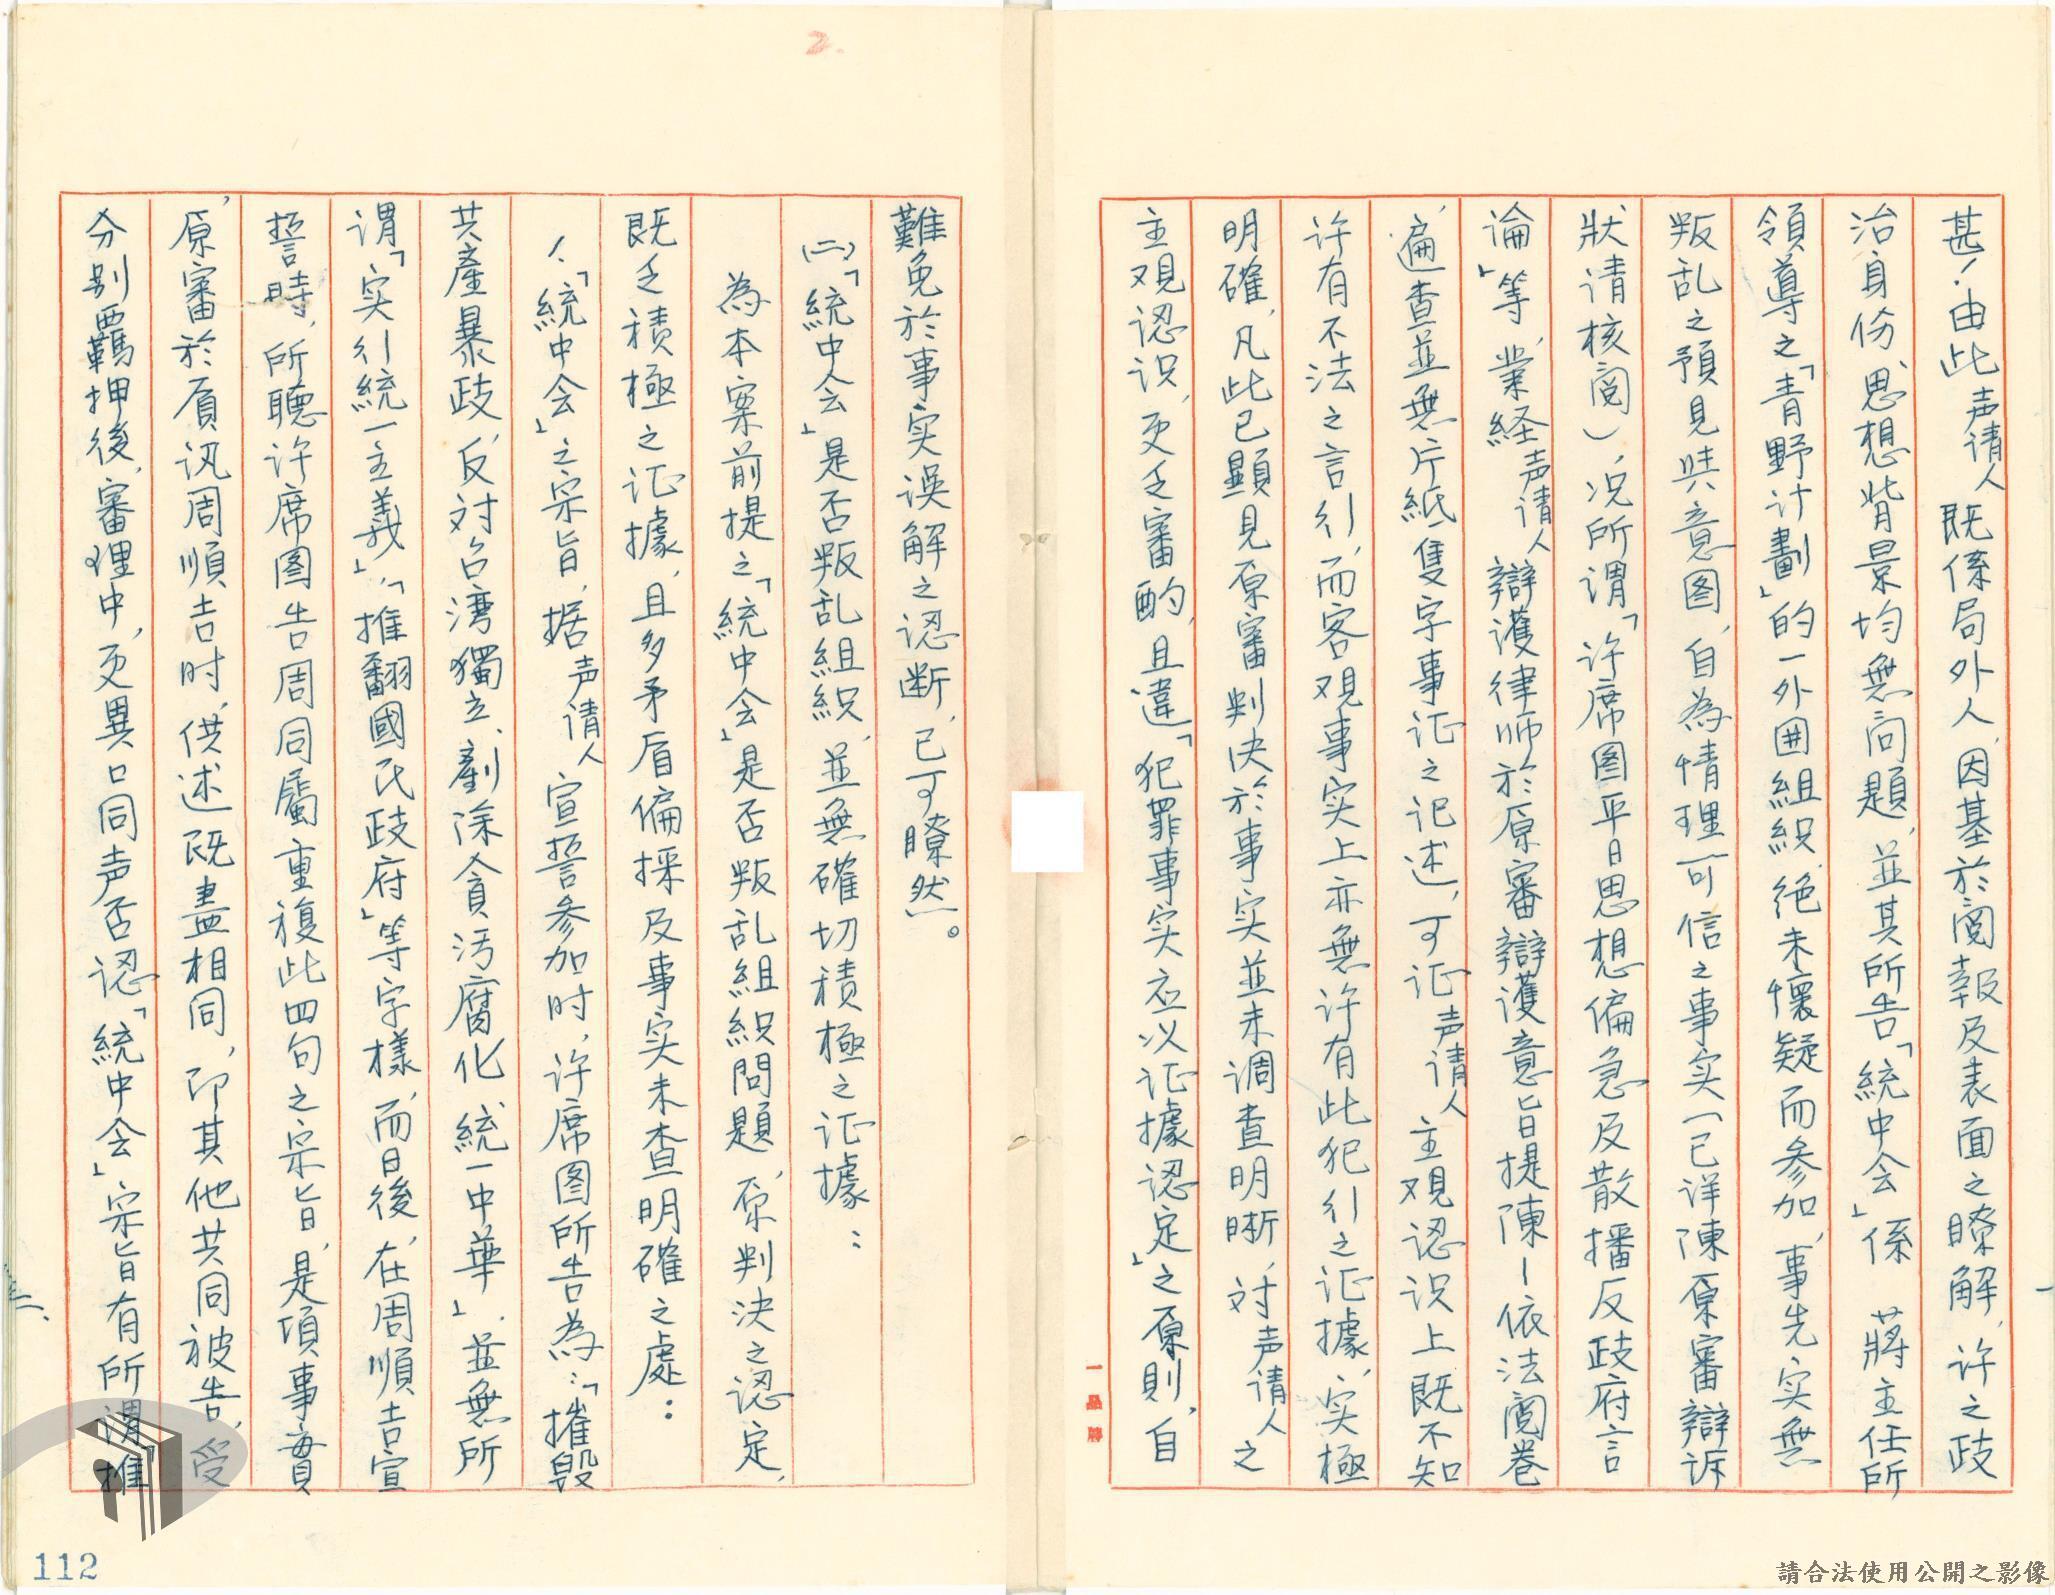 甚！由此声请人既係局外人，因基於阅報及表面之瞭解，许之政
治身份、思想背景均無问題，並其所告「統中会」係　蔣主任所
領導之「青野计劃」的一外囲組織，绝未懷疑而参加，事先实無
叛乱之預見與意图，自為情理可信之事实（已详陳原審辯诉
狀请核阅），况所谓「许席图平日思想偏急及散播反政府言
論」等，業经声请人辯護律师於原審辯護意旨提陳－依法阅卷
，遍查並無片紙隻字事证之记述，可证声请人主观认识上既不知
许有不法之言行，而客观事实上亦無许有此犯行之证據，实極
明確，凡此已顯見原審判决於事实並未调查明晰，对声请人之
主观认识，更乏審酌，且違「犯罪事实应以证據認定」之原則，自
難免於事实误解之認断，已可瞭然。
㈡「統中会」是否叛乱組織，並無確切積極之证據：
為本案前提之「統中会」是否叛乱組織問題，原判決之認定，
既乏積極之证據，且多矛盾偏採及事实未查明確之處：
1、「統中会」之宗旨，据声请人宣誓参加时，许席图所告為：「摧毀
共產暴政，反对台湾獨立，剷除贪污腐化，統一中華」，並無所
谓「实行統一主義」，「推翻國民政府」等字樣，而日後，在周順吉宣
誓時，所聽许席图告周同屬重複此四句之宗旨，是項事實
，原審於質讯周順吉时，供述既盡相同，即其他共同被告，受
分别羈押後，審理中，更異口同声否認「統中会」宗旨有所谓「推
一品牌
2.
一
二、
112
請合法使用公開之影像